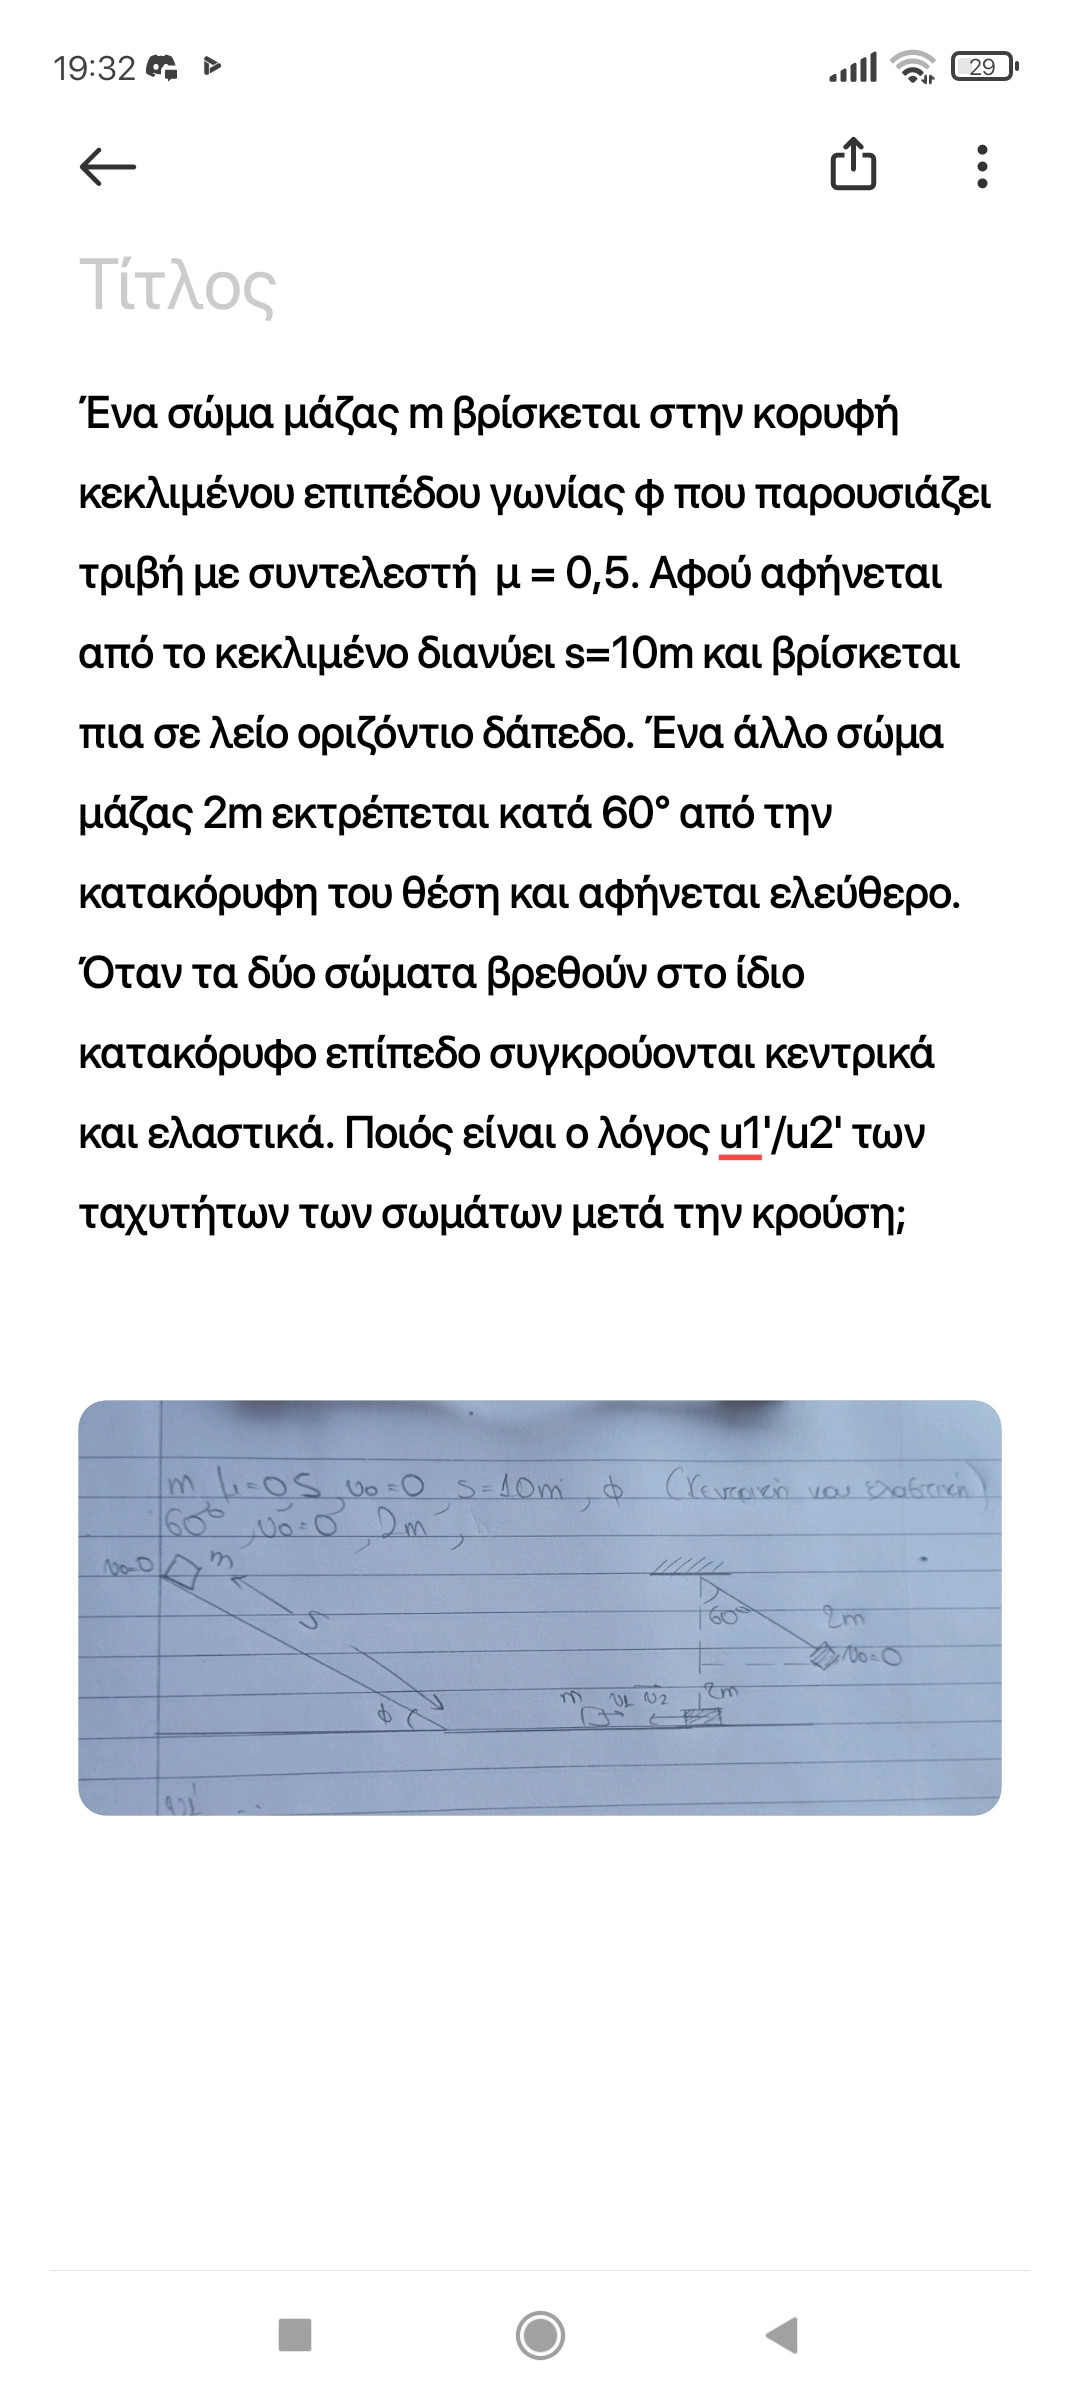 19:32
29
Τίτλος
Ένα σώμα μάζας m βρίσκεται στην κορυφή
κεκλιμένου επιπέδου γωνίας φ που παρουσιάζει
τριβή με συντελεστή μ = 0,5. Αφού αφήνεται
από το κεκλιμένο διανύει s=10m και βρίσκεται
πια σε λείο οριζόντιο δάπεδο. Ένα άλλο σώμα
μάζας 2m εκτρέπεται κατά 60° από την
κατακόρυφη του θέση και αφήνεται ελεύθερο.
Όταν τα δύο σώματα βρεθούν στο ίδιο
κατακόρυφο επίπεδο συγκρούονται κεντρικά
και ελαστικά. Ποιός είναι ο λόγος u1'/u2' των
ταχυτήτων των σωμάτων μετά την κρούση;
m μ=0,5, υο=0, s=10m, φ (κεντρική και ελαστική)
60°, υο=0, 2m,
υο=0 m
S
60° 2m
υο=0
φ m υ1 υ2 2m